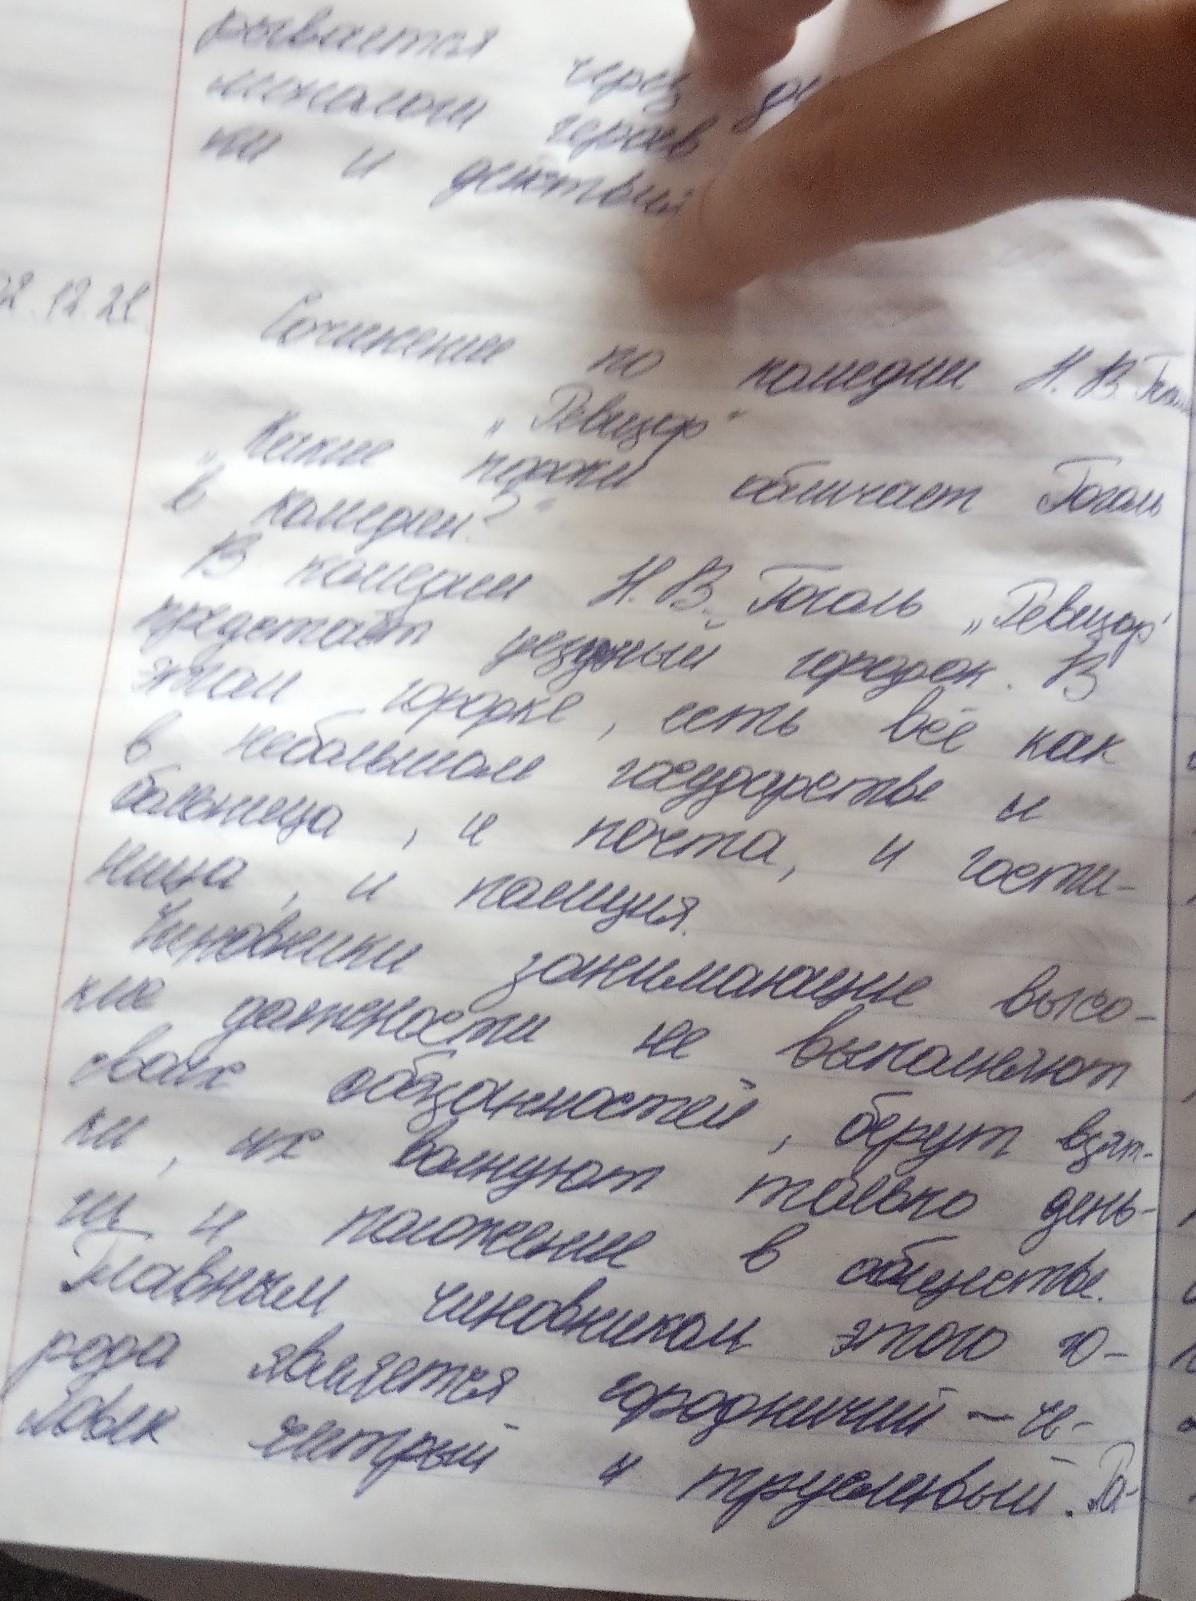 рывается через
монологи героев
ки и действия
12.21
Сочинение по комедии Н. В Гоголя
"Ревизор"
"Какие пороки обличает Гоголь
в комедии?"
В комедии Н. В. Гоголь "Ревизор"
предстаёт уездный городок. В
этом городке, есть всё как
в небольшом государстве и
больница, и почта, и гости-
ница, и полиция.
Чиновники занимающие высо-
кие должности не выполняют
своих обязанностей, берут взят-
ки, их волнуют только день-
ги и положение в обществе.
Главным чиновником этого го-
рода является городничий - че-
ловек хитрый и трусливый.